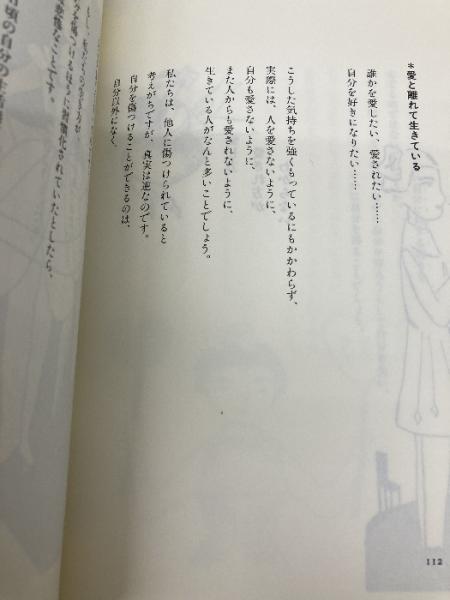 *愛と離れて生きている
誰かを愛したい、愛されたい……
自分を好きになりたい……
こうした気持ちを強くもっているにもかかわらず、
実際には、人を愛さないように、
自分も愛さないように、
また人からも愛されないように、
生きている人がなんと多いことでしょう。
私たちは、他人に傷つけられていると
考えがちですが、真実は逆なのです。
自分を傷つけることができるのは、
自分以外になく、
112